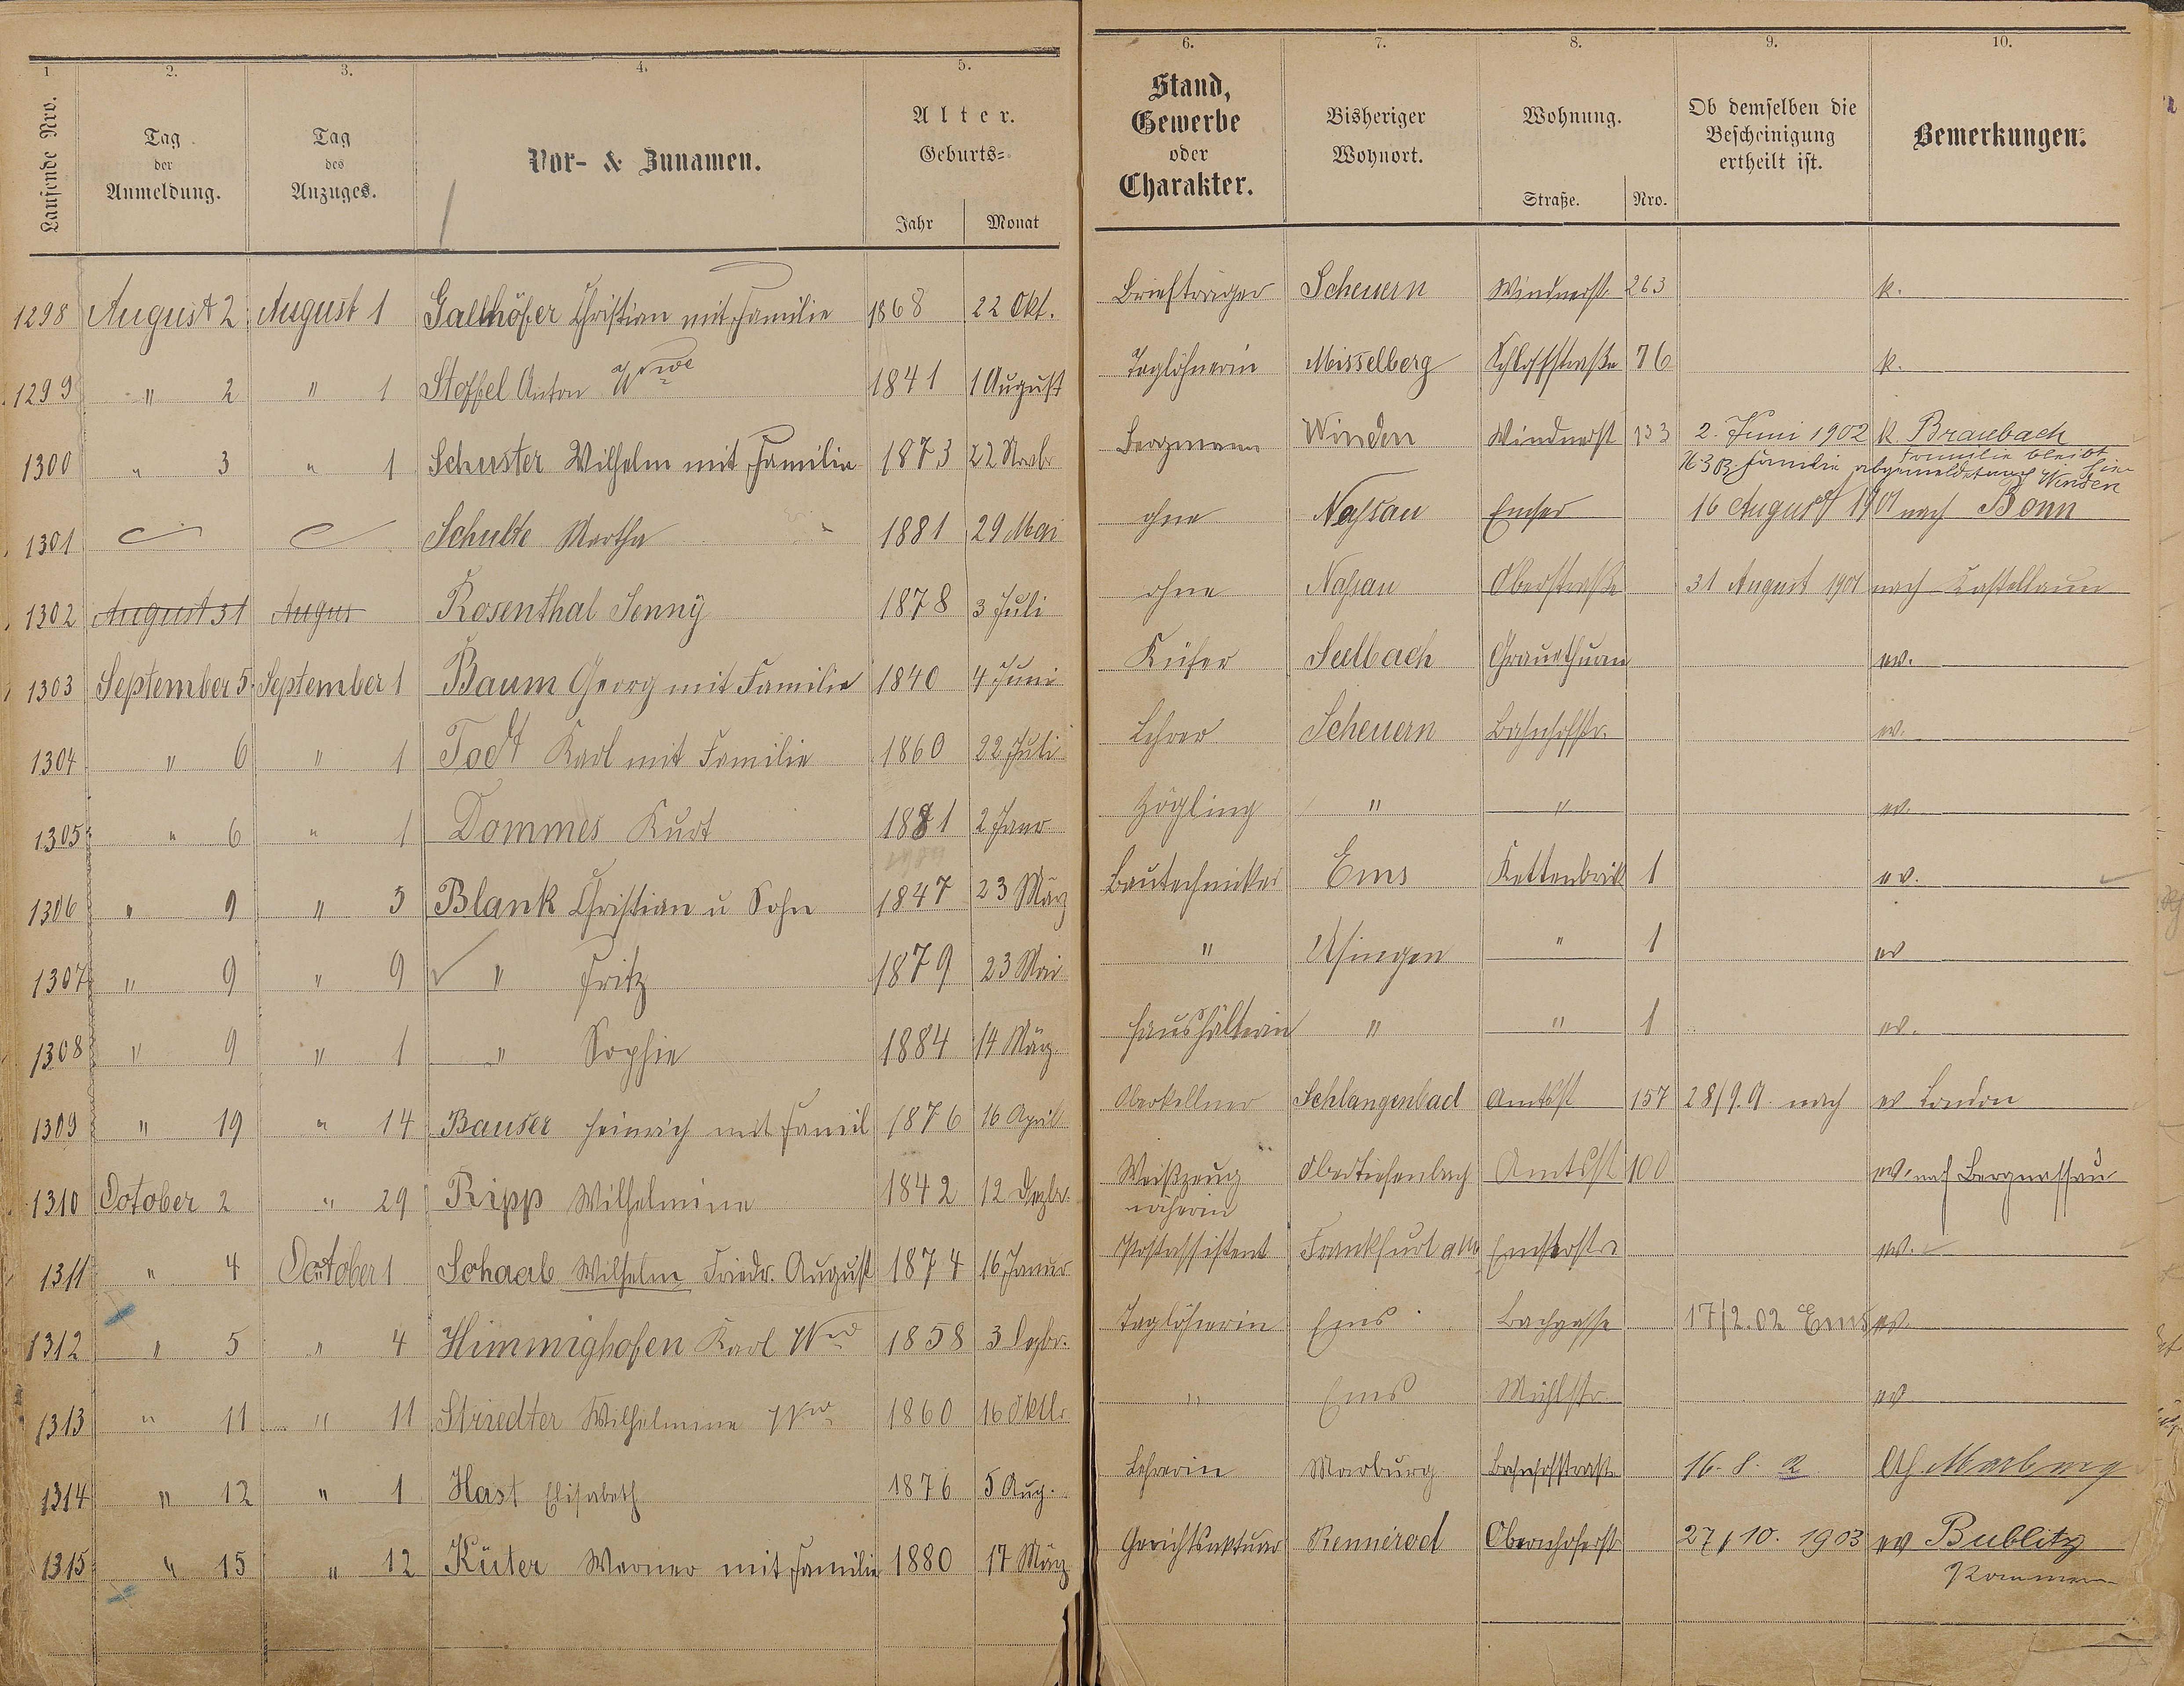 1 2. 3. 4. 5. 6. 7. 8. 9. 10.
Laufende Nro. Tag der Anmeldung. Tag des Anzuges. Vor- & Zunamen. Alter. Geburts= Jahr Monat Stand, Gewerbe oder Charakter. Bisheriger Wohnort. Wohnung. Straße. Nro. Ob demselben die Bescheinigung ertheilt ist. Bemerkungen.
1298 August 2 August 1 Gallhöfer Christian mit Familie 1868 22 Okt. Briefträger Scheuern Windnerst. 263 k.
1299 " 2 " 1 Stoffel Anton Wwe 1841 1 August Taglöhnerin Misselberg Schloßstraße 76 k.
1300 " 3 " 1 Schuster Wilhelm mit Familie 1873 22 Novbr Bergmann Winden Windnerst 133 2. Juni 1902 k Braubach
Familie bleibt hier
Familie abgemeldet nach Winden
1301 Schulte Martha 1881 29 Mai ohne Nassau Emser 16 August 1901 nach Bonn
1302 August 31 Augus Rosenthal Jenny 1878 3 Juli ohne Nassau Oberstraße 31 August 1901 nach Kastellaun
1303 September 5. September 1 Baum Georg mit Familie 1840 4 Juni Küfer Seelbach Grauethurm ev.
1304 " 6 " 1 Todt Karl mit Familie 1860 22 Juli Lehrer Scheuern Bahnhofstr. ev.
1305 " 6 " 1 Dommes Kurt 1881 2 Janr Zögling " " ev.
1306 " 9 " 5 Blank Christian u Sohn 1847 23 März Bautechniker Ems Kettenbrück 1 ev.
1307 " 9 " 9 " Fritz 1879 23 Mai " Usingen " 1 ev
1308 " 9 " 1 " Sophie 1884 14 März Haushälterin " " 1 ev.
1309 " 19 " 14 Bauser Heinrich mit Famil 1876 16 April Oberkellner Schlangenbad Amtsst 157 28/9.9. nach ev London
1310 October 2 " 29 Ripp Wilhelmine 1842 12 Dezbr. Weißzeug Obertiefenbach Amtsst 100 ev. nach Bergnassau
näherin
1311 " 4 October 1 Schaab Wilhelm Friedr. August 1874 16 Januar Postassistent Frankfurt a M Emserstr ev.
1312 " 5 " 4 Himmighofen Karl Wwe 1858 3 Dezbr. Taglöhnerin Ems Bachgasse 17/2.02 Ems ev.
1313 " 11 " 11 Striedter Wilhelmine Wwe 1860 16 Oktbr " Ems Mühlstr. ev
1314 " 12 " 1 Hast Elisabeth 1876 5 Aug. Lehrerin Marburg Bahnhofstraße 16. 8. 2 Marburg
1315 " 15 " 12 Küter Werner mit Familie 1880 17 März Gerichtsaktuar Rennerod Obernhoferst 27/10. 1903 ev Bublitz
Pommern